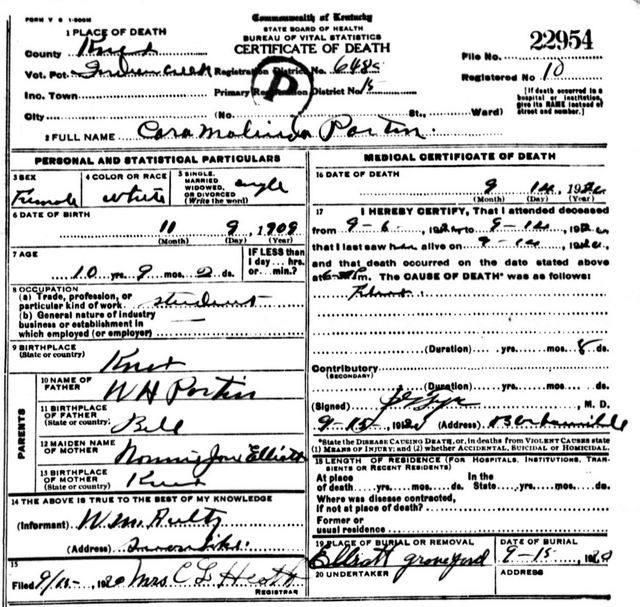 FORM V S 1-500M
Commonwealth of Kentucky
STATE BOARD OF HEALTH
BUREAU OF VITAL STATISTICS
CERTIFICATE OF DEATH
22954
1 PLACE OF DEATH
County Knox
File No.
Vot. Pct. Indian Creek Registration District No. 6480
Registered No. 10
Inc. Town Primary Registration District No. 15
P
[If death occurred in a hospital or institution, give its NAME instead of street and number.]
City (No. St., Ward)
2 FULL NAME Cora Malinda Partin
PERSONAL AND STATISTICAL PARTICULARS
3 SEX Female
4 COLOR OR RACE white
5 SINGLE, MARRIED WIDOWED, OR DIVORCED (Write the word) single
6 DATE OF BIRTH
11 9, 1909
(Month) (Day) (Year)
7 AGE
10 yrs. 9 mos. 2 ds.
IF LESS than 1 day...hrs. or...min.?
8 OCCUPATION
(a) Trade, profession, or particular kind of work student
(b) General nature of industry business or establishment in which employed (or employer)
9 BIRTHPLACE
(State or country) Knox
PARENTS
10 NAME OF FATHER W H Partin
11 BIRTHPLACE OF FATHER (State or country) Bell
12 MAIDEN NAME OF MOTHER Jane Elliott
13 BIRTHPLACE OF MOTHER (State or country) Knox
14 THE ABOVE IS TRUE TO THE BEST OF MY KNOWLEDGE
(Informant) W.M.
(Address)
15
Filed 9/15, 1920 Mrs. C L Heath
REGISTRAR
MEDICAL CERTIFICATE OF DEATH
16 DATE OF DEATH
9 14, 1920
(Month) (Day) (Year)
17 I HEREBY CERTIFY, That I attended deceased
from 9-6, 1920 to 9-14, 1920,
that I last saw her alive on 9-14, 1920,
and that death occurred on the date stated above
at M. The CAUSE OF DEATH* was as follows:
(Duration) yrs. mos. 8 ds.
Contributory
(SECONDARY)
(Duration) yrs. mos. ds.
(Signed) M. D.
9-15, 1920 (Address)
*State the DISEASE CAUSING DEATH, or, in deaths from VIOLENT CAUSES state
(1) MEANS OF INJURY; and (2) whether ACCIDENTAL, SUICIDAL OR HOMICIDAL.
18 LENGTH OF RESIDENCE (FOR HOSPITALS, INSTITUTIONS, TRANSIENTS OR RECENT RESIDENTS)
At place of death yrs. mos. ds. In the State yrs. mos. ds.
Where was disease contracted, if not at place of death?
Former or usual residence
19 PLACE OF BURIAL OR REMOVAL Elliott graveyard
DATE OF BURIAL 9-15, 1920
20 UNDERTAKER
ADDRESS